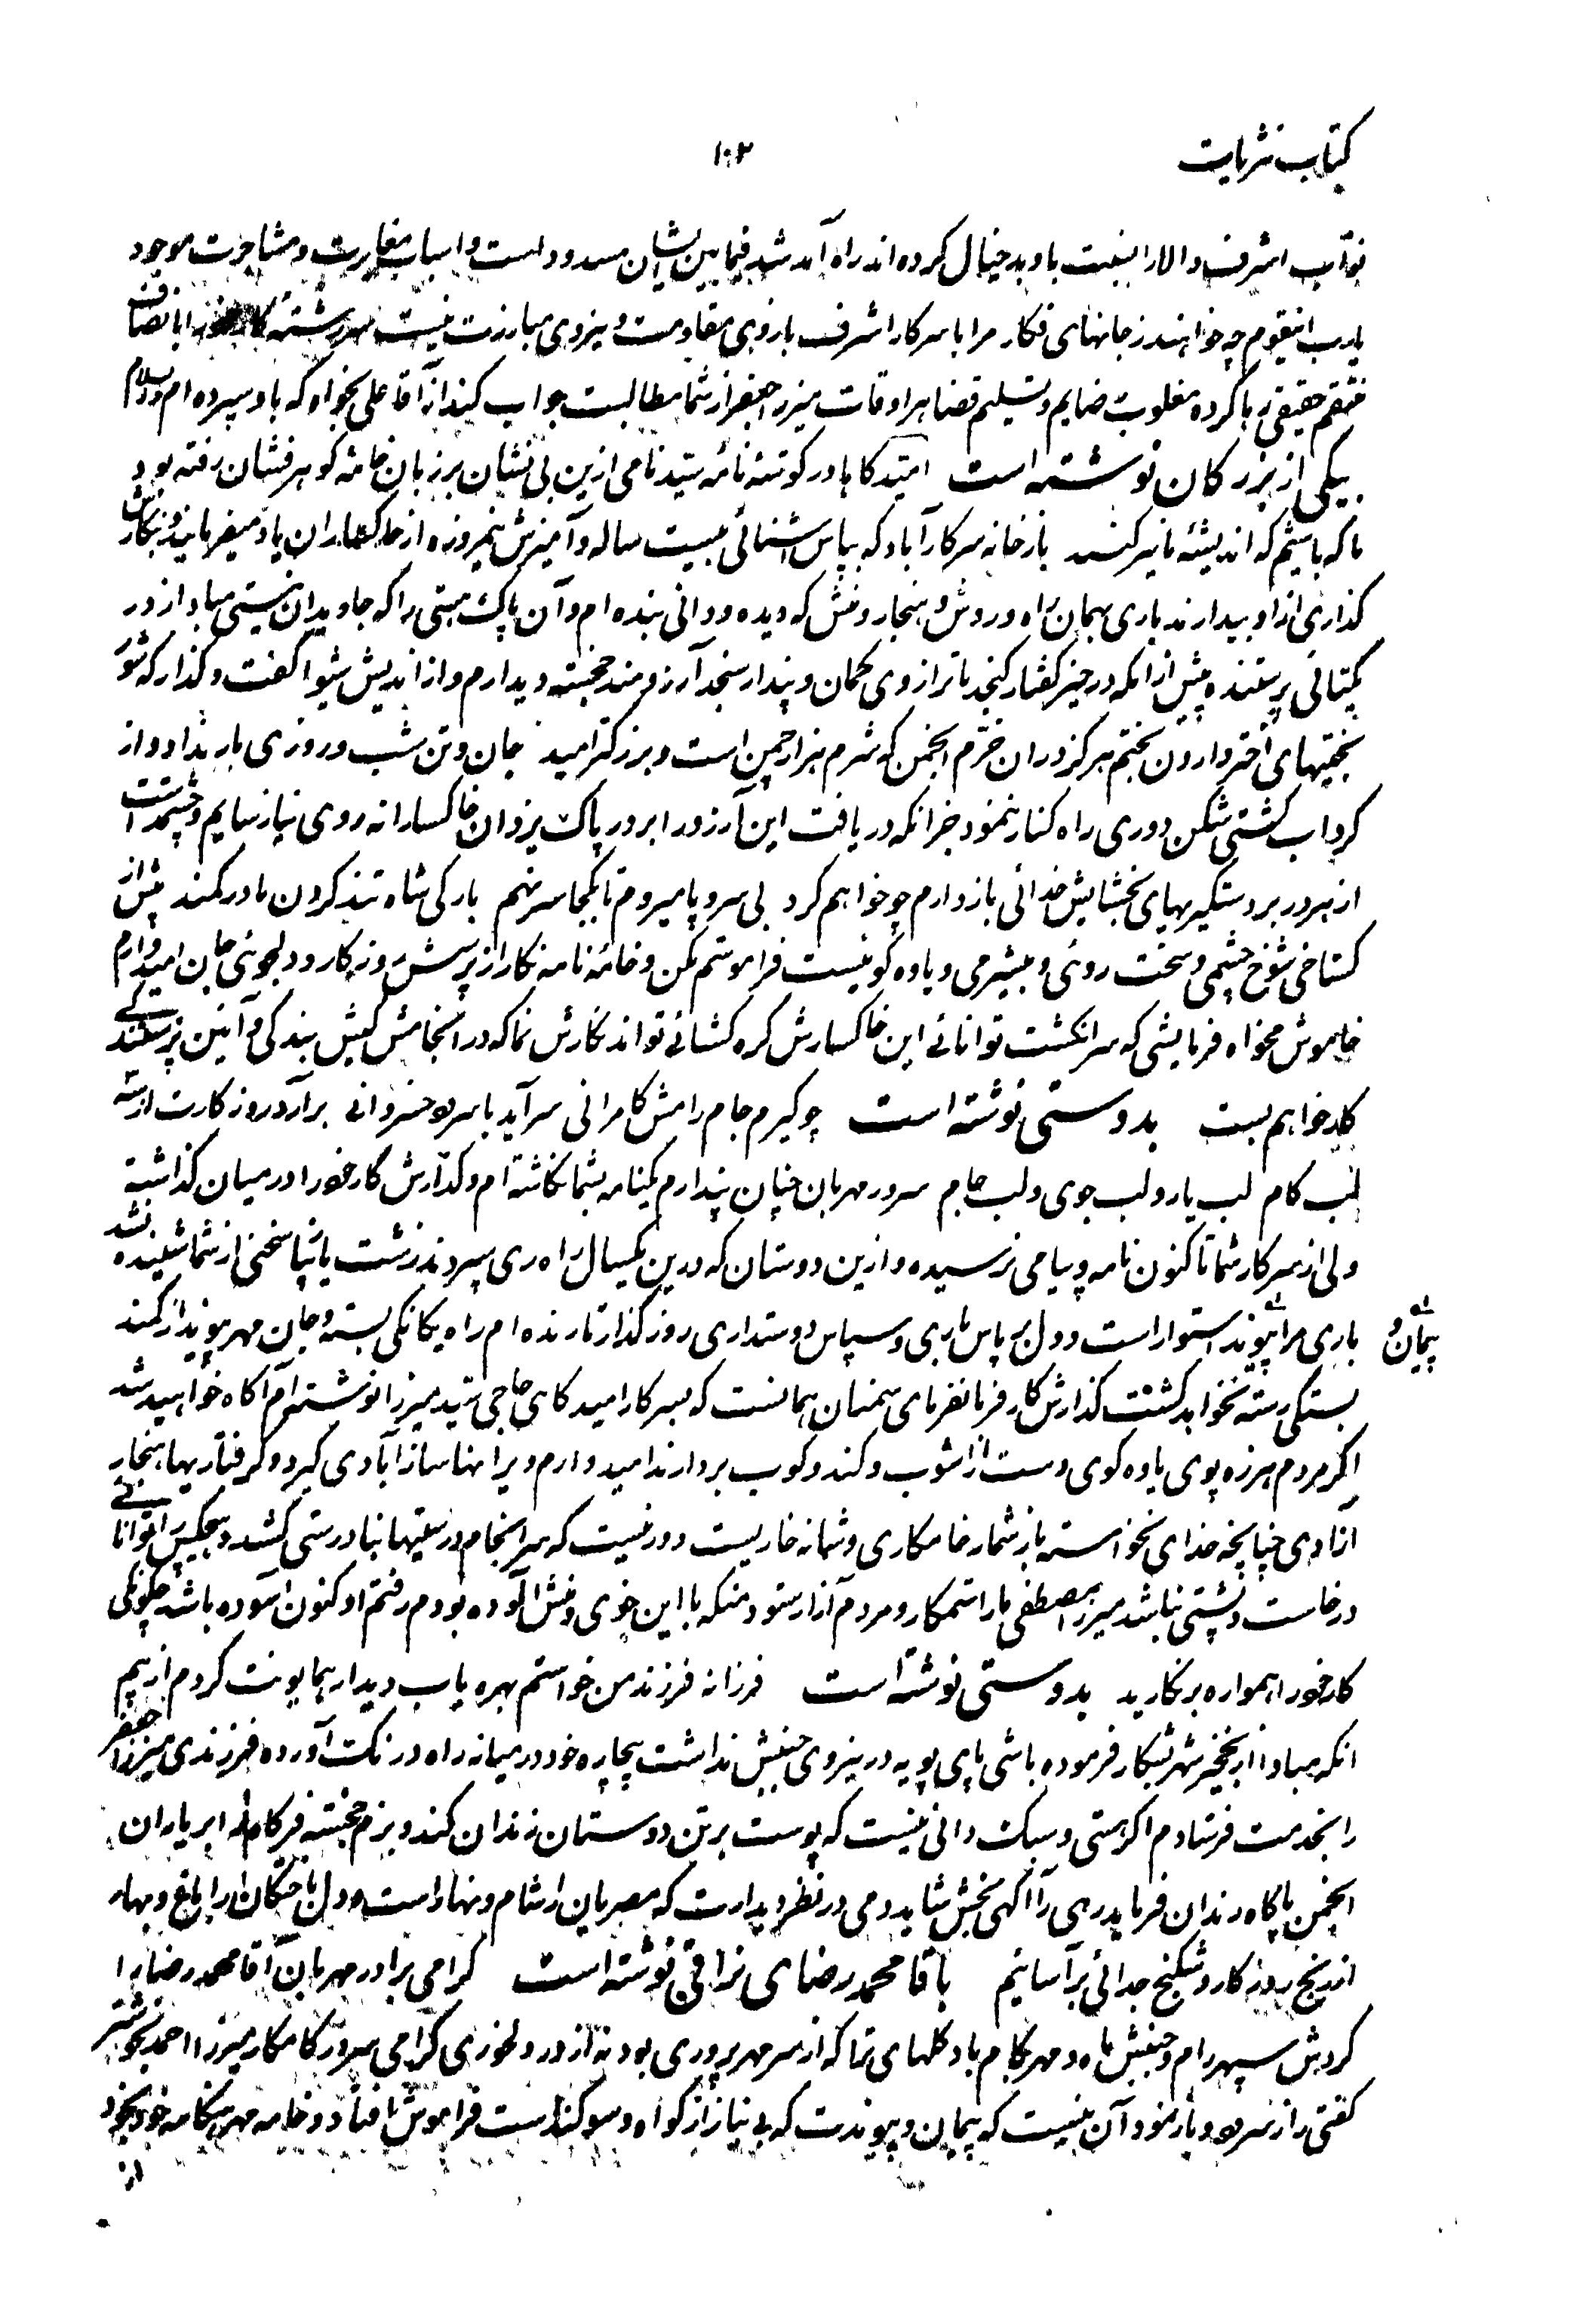 کتاب نثریات
۱۰۲
نوآب اشرف والا را نسبت باو بدخیال کرده اند راه آمد شد فیمابین ایشان مسدود است و اسباب مغایرت و مشاجرت موجود
یارب اینقوم چه خواهند ز جانهای فکار مرا با سرکار اشرف بازوی مقاومت و نیروی مبارزت نیست سررشته کار را بانصاف
منتقم حقیقی رها کرده مغلوب رضایم و تسلیم قضا هر اوقات میرزا جعفر از شما مطالبت جواب کند از آقا علی بخواه که باو سپرده ام والسلام
بیکی از بزرکان نوشته است امیدکاها در کوشه نامه سید نامی ازین بی نشان بر زبان خامه کوهرفشان رفته بود
ما که باشیم که اندیشه ما نیز کنند باز خانه سرکار آباد که بپاس آشنائی بیست ساله و آمیزش نیمروزه از خاکساران یاد میفرمایند و نکارش
کذاری از او بیدارند باری بهمان راه و روش و هنجار و منش که دیده و دانی بنده ام و آن پاک هستی را که جاویدان نیستی مباد از در
یکتائی پرستنده پیش از انکه در خیر کفتار کنجد یا ترازوی کمان و پندار سنجد آرزومند خجسته دیدارم و از اندیش شیوا کفت و کذار که شور
بختیهای اختر وارون بختم هرکز در ان خرم انجمن که شرم هزار چمن است و بزرکتر امید جان و تن شب و روزی بار نداد و از
کرداب کشتی شکن دوری راه کنار ننمود جز انکه دریافت این آرزو را بر در پاک یزدان خاکسارانه روی نیاز سایم و چشمداشت
از هر در بر دستکیریهای بخشایش خدائی باز دارم چو خواهم کرد بی سر و پا میروم تا بکجا سر نهم بارکی شاه تند کردن ما در کمند پیش از
کستاخی شوخ چشمی و سخت روئی و بیشرمی و یاوه کوئیست فراموشم مکن و خامه نامه نکار از پرسش روزکار و دلجوئی جان امیدوارم
خاموش مخواه فرمایشی که سرانکشت توانائی این خاکسارش کره کشائی تواند نکارش نما که در انجامش کیش بندکی و آئین پرستندکی
کار خواهم بست بدوستی نوشته است چو کیرم جام رامش کامرانی سرآید با سرود خسروانی برآرد روزکارت از سه
لب کام لب یار و لب جوی و لب جام سرور مهربان چنان پندارم یکنامه بشما نکاشته ام و کذارش کار خود را در میان کذاشته
ولی از سرکار شما تا کنون نامه و پیامی نرسیده و ازین دوستان که درین یکسال راه ری سپردند زشت یا زیبا سخنی از شما شنیده نشد
باری مرا پیوند استوار است و دل بر پاس یاری و سپاس دوستداری روز کذار تا زنده ام راه یکانکی بسته و جان مهرپیوند از کمند
پیمان و
بستکی رسته نخواهد کشت کذارش کار فرمانفرمای سمنان همانست که بسرکار امیدکاهی حاجی سید میرزا نوشته ام آکاه خواهید شد
اکر مردم هرزه پوی یاوه کوی دست از آشوب و کند و کوب بردارند امیدوارم ویرانها ساز آبادی کیرد و کرفتاریها هنجار
آزادی چنانچه خدای نخواسته باز شمار خامکاری و شمانه خاریست دور نیست که سرانجام درستیها بنادرستی کشد و هیچکس را توانائی
درخاست و پشتی نباشد میرزا مصطفی مار استمکار و مردم آزار ستود منکه با این خوی و منش آلوده بودم رفتم او کنون آسوده باشد چکونکی
کار خود را همواره برنکارید بدوستی نوشته است فرزانه فرزند من خواستم بهره یاب دیدار همایونت کردم از بیم
انکه مبادا از نخجیر شهر شکار فرموده باشی پای پویه در نیروی جنبش نداشت بیچاره خود در میانه راه درنکت آورده فرزندی میرزا جعفر
را بخدمت فرستادم اکر هستی و سبک دانی نیست که پوست بر تن دوستان زندان کند و بزم خجسته فرکاه را بر یاران
انجمن پاکاه رندان فرماید رهی را آکهی بخش شاید دمی در نظر دیدارت که مصریان را شام و نهار است و دل باختکان را باغ و بهار
از رنج روزکار و شکنج جدائی برآسائیم باقا محمدرضای نراقی نوشته است کرامی برادر مهربان آقا محمدرضا را
کردش سپهر رام و جنبش ماه و مهر بکام باد کلهای تما که از سر مهرپروری بود نه از در دلخوری کرامی سرور کامکار میرزا احمد بخوشتر
کفتی راز سرود و باز نمود آن نیست که پیمان و پیوندت که بی نیاز از کواه و سوکند است فراموش افتاد و خامه مهر هنکامه خود بخود
از